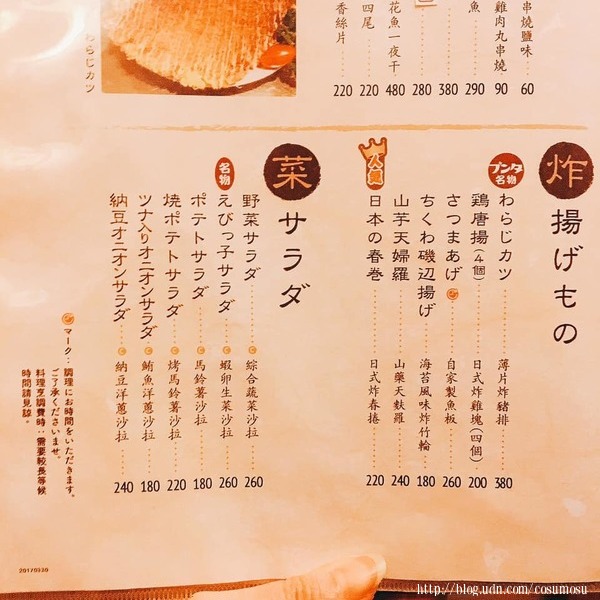 串燒鹽味
60
雞肉丸串燒
90
魚
290
380
280
花魚一夜干
480
四尾
220
香絲片
220
わらじカツ
炸
揚げもの
プンタ
名物
わらじカツ
薄片炸豬排
380
鶏唐揚(4個)
日式炸雞塊(四個)
200
さつまあげ
自家製魚板
260
ちくわ磯辺揚げ
海苔風味炸竹輪
180
山芋天婦羅
山藥天麩羅
240
人氣
日本の春巻
日式炸春捲
220
菜
サラダ
野菜サラダ
綜合蔬菜沙拉
260
名物
えびっ子サラダ
蝦卵生菜沙拉
260
ポテトサラダ
馬鈴薯沙拉
180
焼ポテトサラダ
烤馬鈴薯沙拉
220
ツナ入りオニオンサラダ
鮪魚洋蔥沙拉
180
納豆オニオンサラダ
納豆洋蔥沙拉
240
マーク:調理にお時間をいただきます。
ご了承くださいませ。
料理烹調費時:需要較長等候
時間請見諒。
20170930
http://blog.udn.com/cosumosu